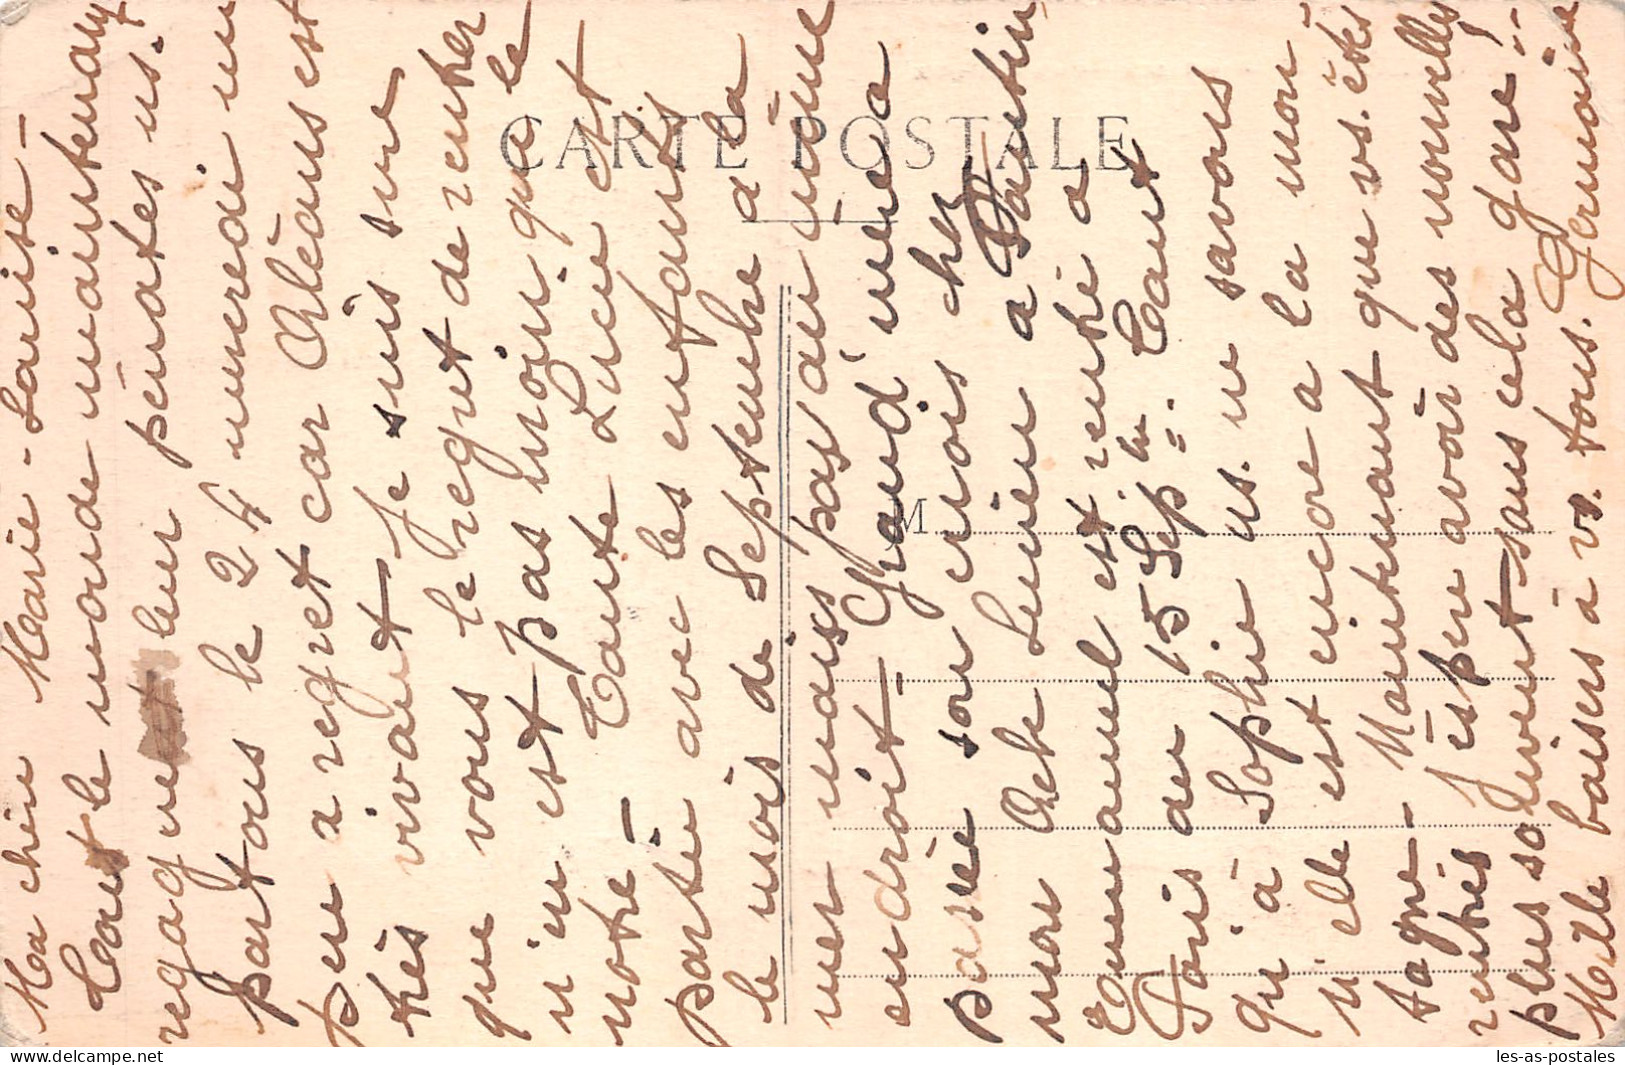 CARTE POSTALE
M
Ma chère Marie-Louise -
Tout le monde maintenant
regagnent leur pénates ns.
partons le 24 mercredi un
peu à regret car Orléans est
très vivant Je suis sure
que vous le regret de rentrer
n'en est pas moin que le
notre - Tante Lucie est
partie avec les enfants
le mois de Septembre à la
mer mais pas au même
endroit - Grand'mère a
passée son mois chez
mon Oncle Lucien a Pantin
Emmanuel est rentré a
Paris du 15 Sepbre. Tant
qu'à Sophie ns. ne savons
si elle est encore a la mon
tagne - Maintenant que vs. êtes
rentrés j'espère avoir des nouvelles
plus souvent sans cela gare !..
Mille baisers à vs. tous. Germaine
les-as-postales.com